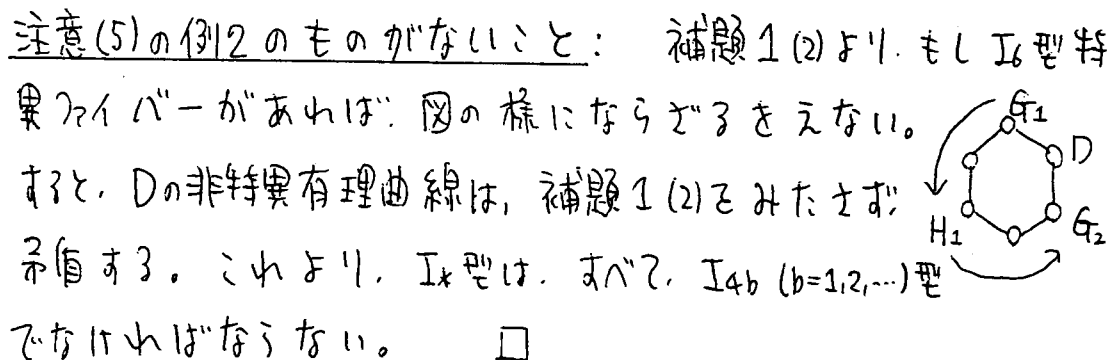 注意(5)の例2のものがないこと： 補題1(2)より、もしI₆型特
異ファイバーがあれば、図の様にならざるをえない。
すると、Dの非特異有理曲線は、補題1(2)をみたさず、
矛盾する。これより、I*型は、すべて、I₄b (b=1,2,…)型
でなければならない。 □
G₁
D
H₁
G₂